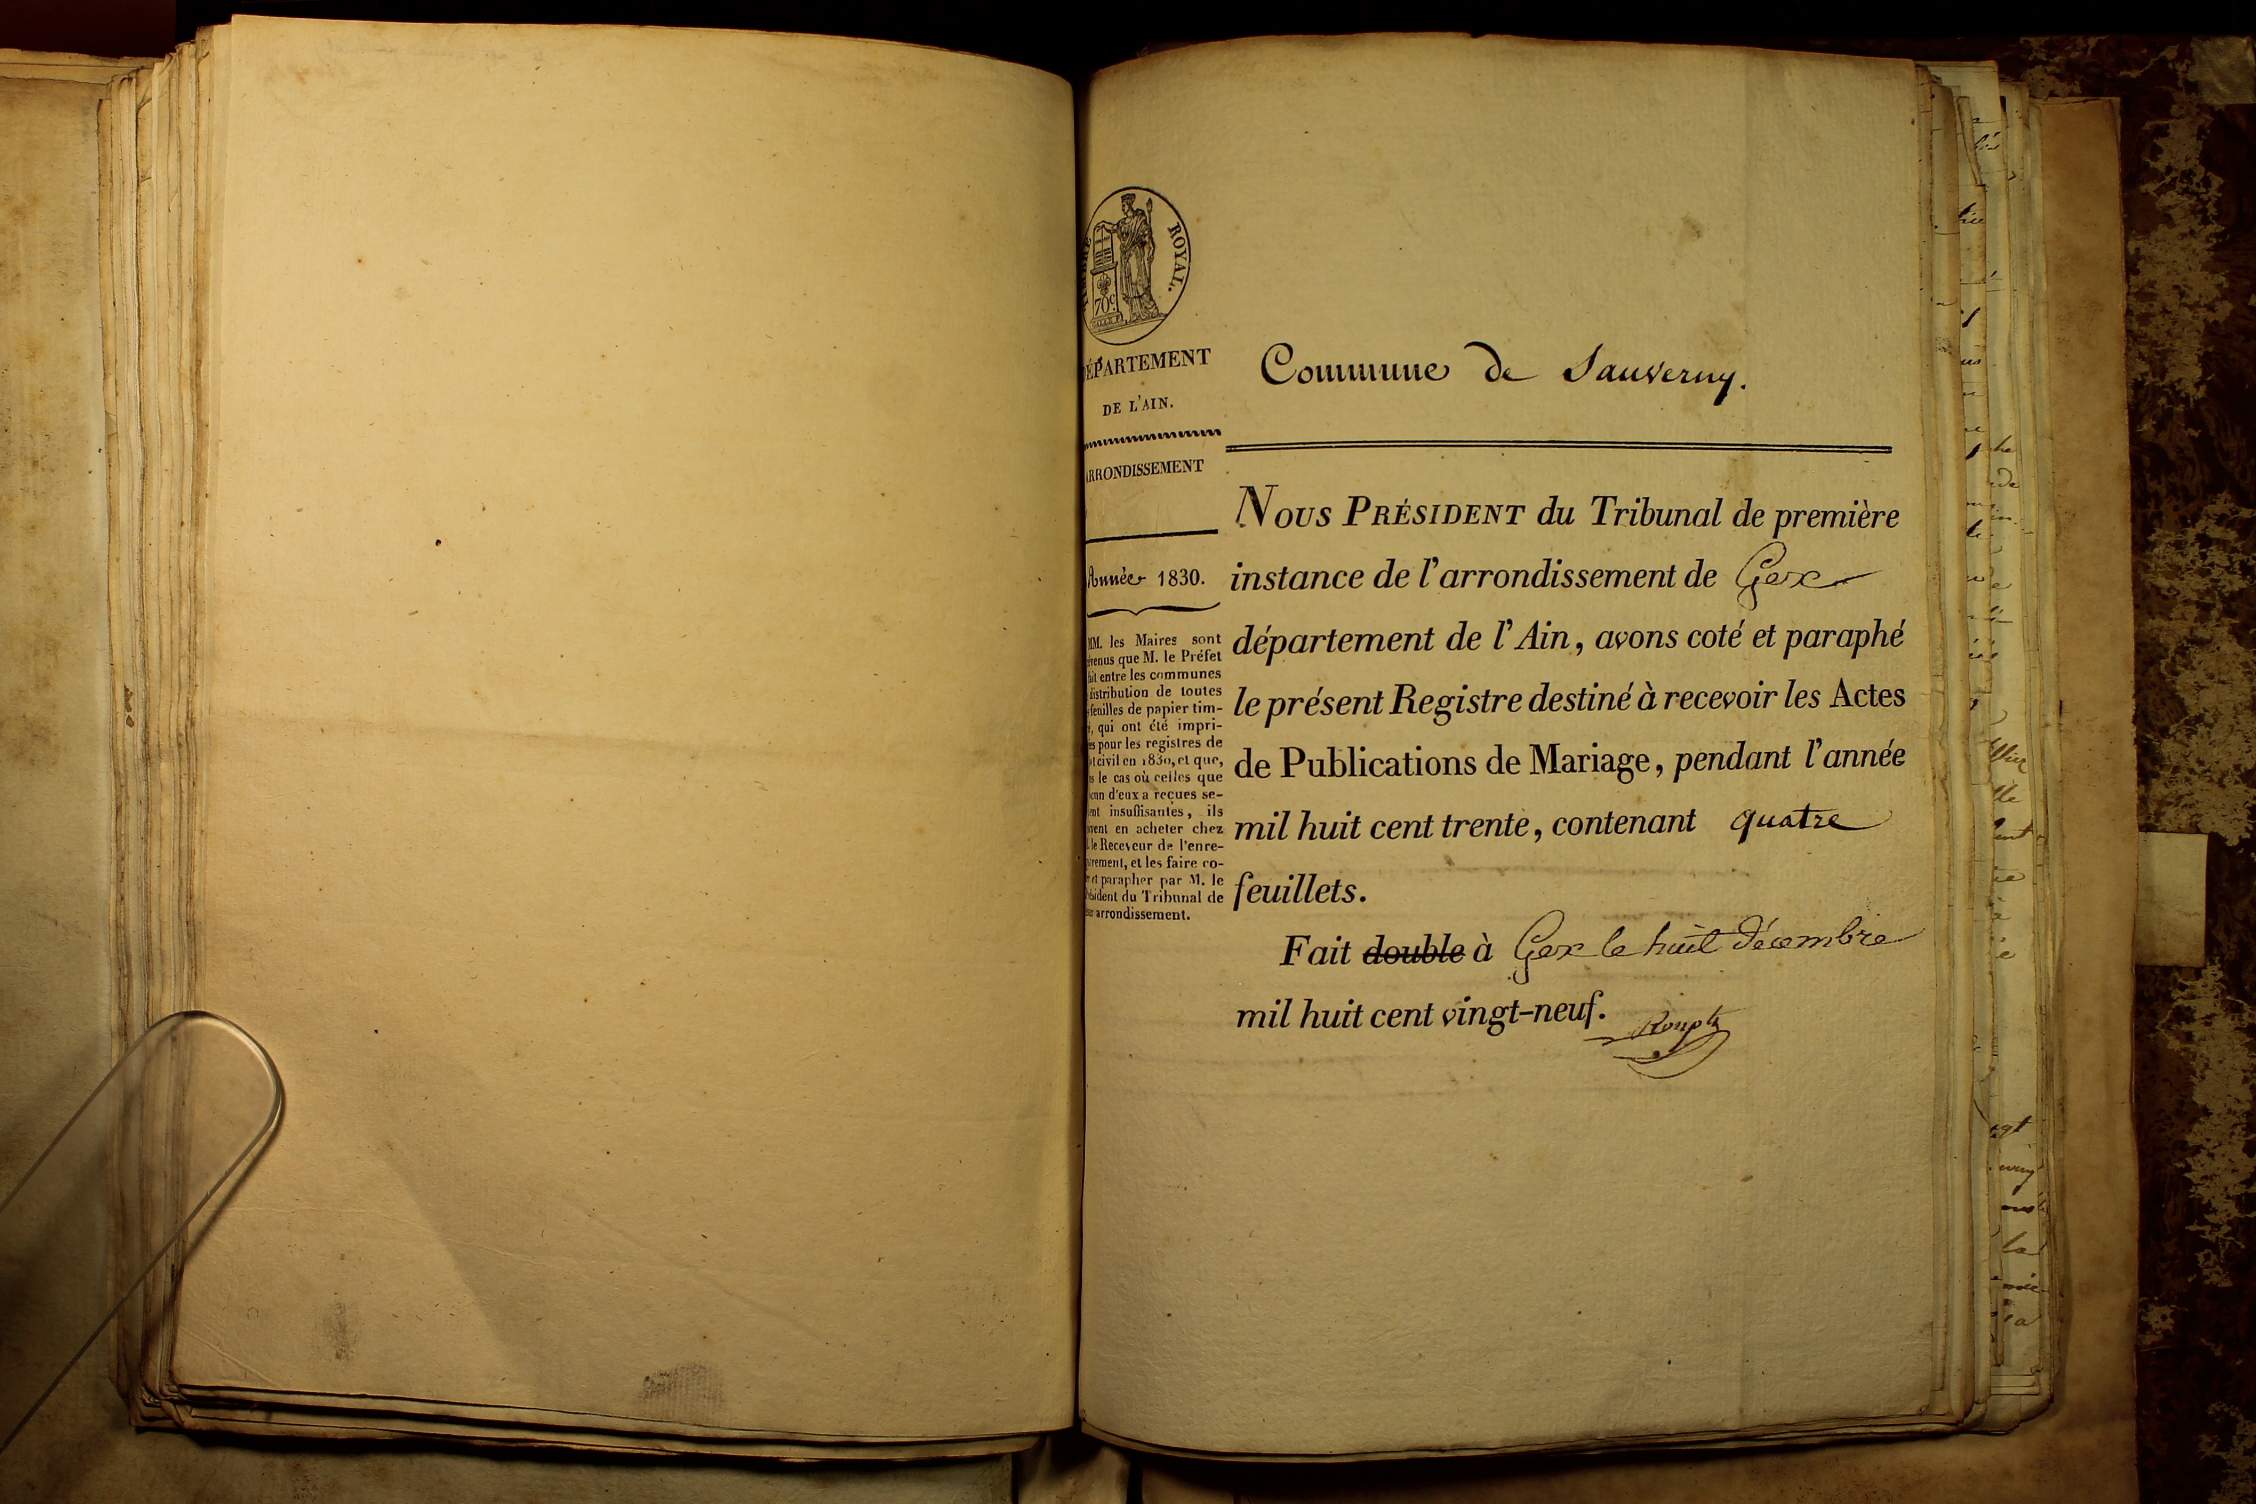 ROYAL.
70c.
DÉPARTEMENT
DE L'AIN.
ARRONDISSEMENT
Année 1830.
MM. les Maires sont
venus que M. le Préfet
fait entre les communes
distribution de toutes
feuilles de papier tim-
, qui ont été impri-
es pour les registres de
civil en 1830, et que,
s le cas où celles que
cun d'eux a reçues se-
ent insuffisantes, ils
vent en acheter chez
le Receveur de l'enre-
rement, et les faire co-
et parapher par M. le
Président du Tribunal de
arrondissement.
Commune de Sauverny.
NOUS PRÉSIDENT du Tribunal de première
instance de l'arrondissement de Gex
département de l'Ain, avons coté et paraphé
le présent Registre destiné à recevoir les Actes
de Publications de Mariage, pendant l'année
mil huit cent trente, contenant quatre
feuillets.
Fait double à Gex le huit décembre
mil huit cent vingt-neuf.